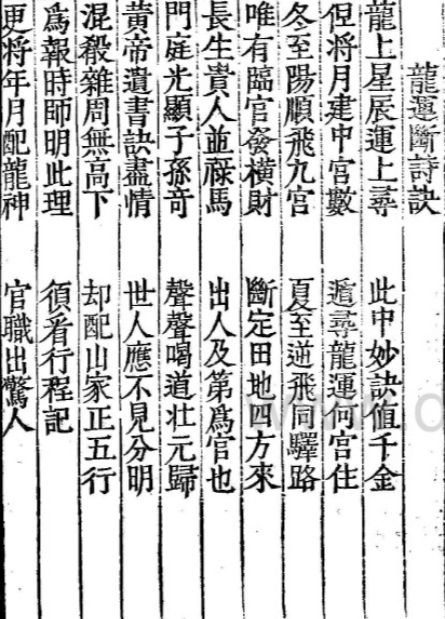 龍運斷詩訣
龍上星辰運上尋　此中妙訣值千金
但将月建中宮數　遁尋龍運何宮住
冬至陽順飛九宮　夏至逆飛同驛路
唯有臨官發横財　斷定田地四方來
長生貴人並祿馬　出人及第爲官也
門庭光顯子孫奇　聲聲喝道壮元歸
黄帝遺書訣盡情　世人應不見分明
混殺雜周無高下　却配山家正五行
爲報時師明此理　須看行程記
更将年月配龍神　官職出驚人